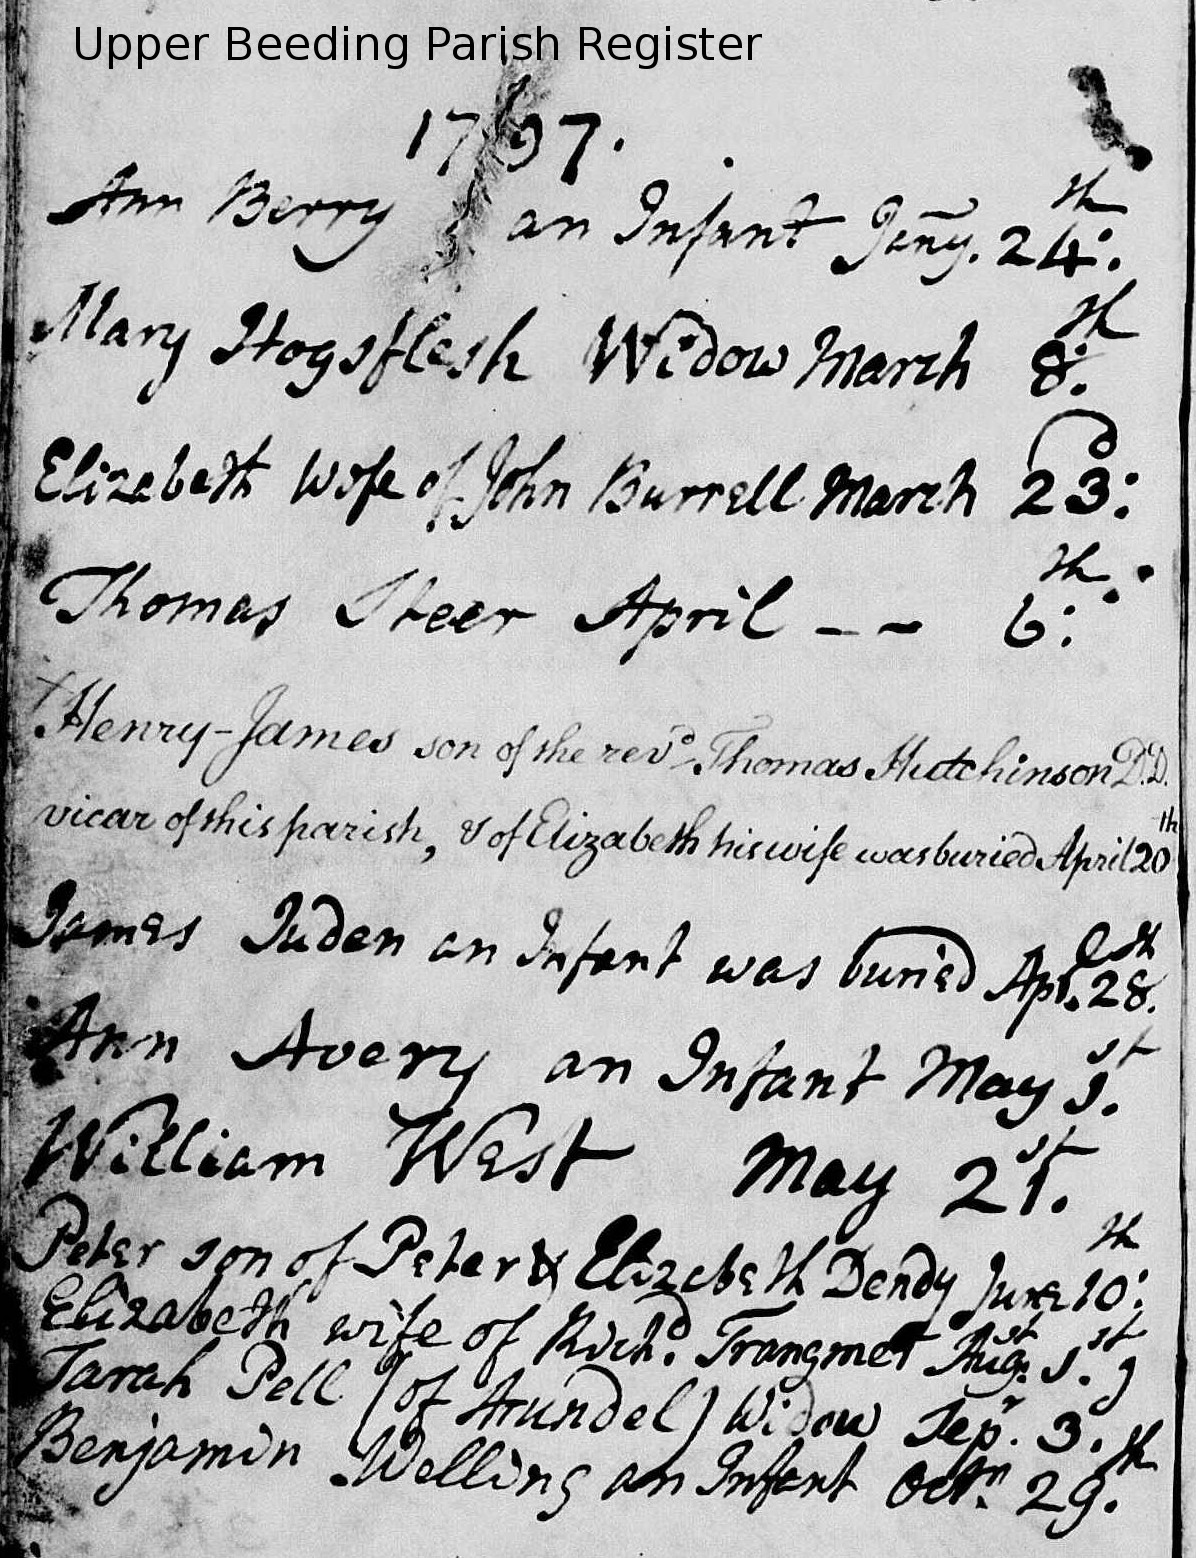 Upper Beeding Parish Register
1797.
Ann Berry an Infant Jany. 24th.
Mary Hogsflesh Widow March 8th.
Elizabeth Wife of John Burrell March 23d:
Thomas Steer April -- 6th:
Henry-James son of the revd. Thomas Hutchinson D.D.
vicar of this parish, & of Elizabeth his wife was buried April 20th
James Juden an Infant was buried Apl. 28th.
Ann Avery an Infant May 1st.
William West May 21st.
Peter son of Peter & Elizabeth Dendy June 10th:
Elizabeth wife of Richd. Trangmer Augst. 1st.
Sarah Pell (of Arundel) Widow Sepr. 3.
Benjamin Welling an Infant Octr. 29th.